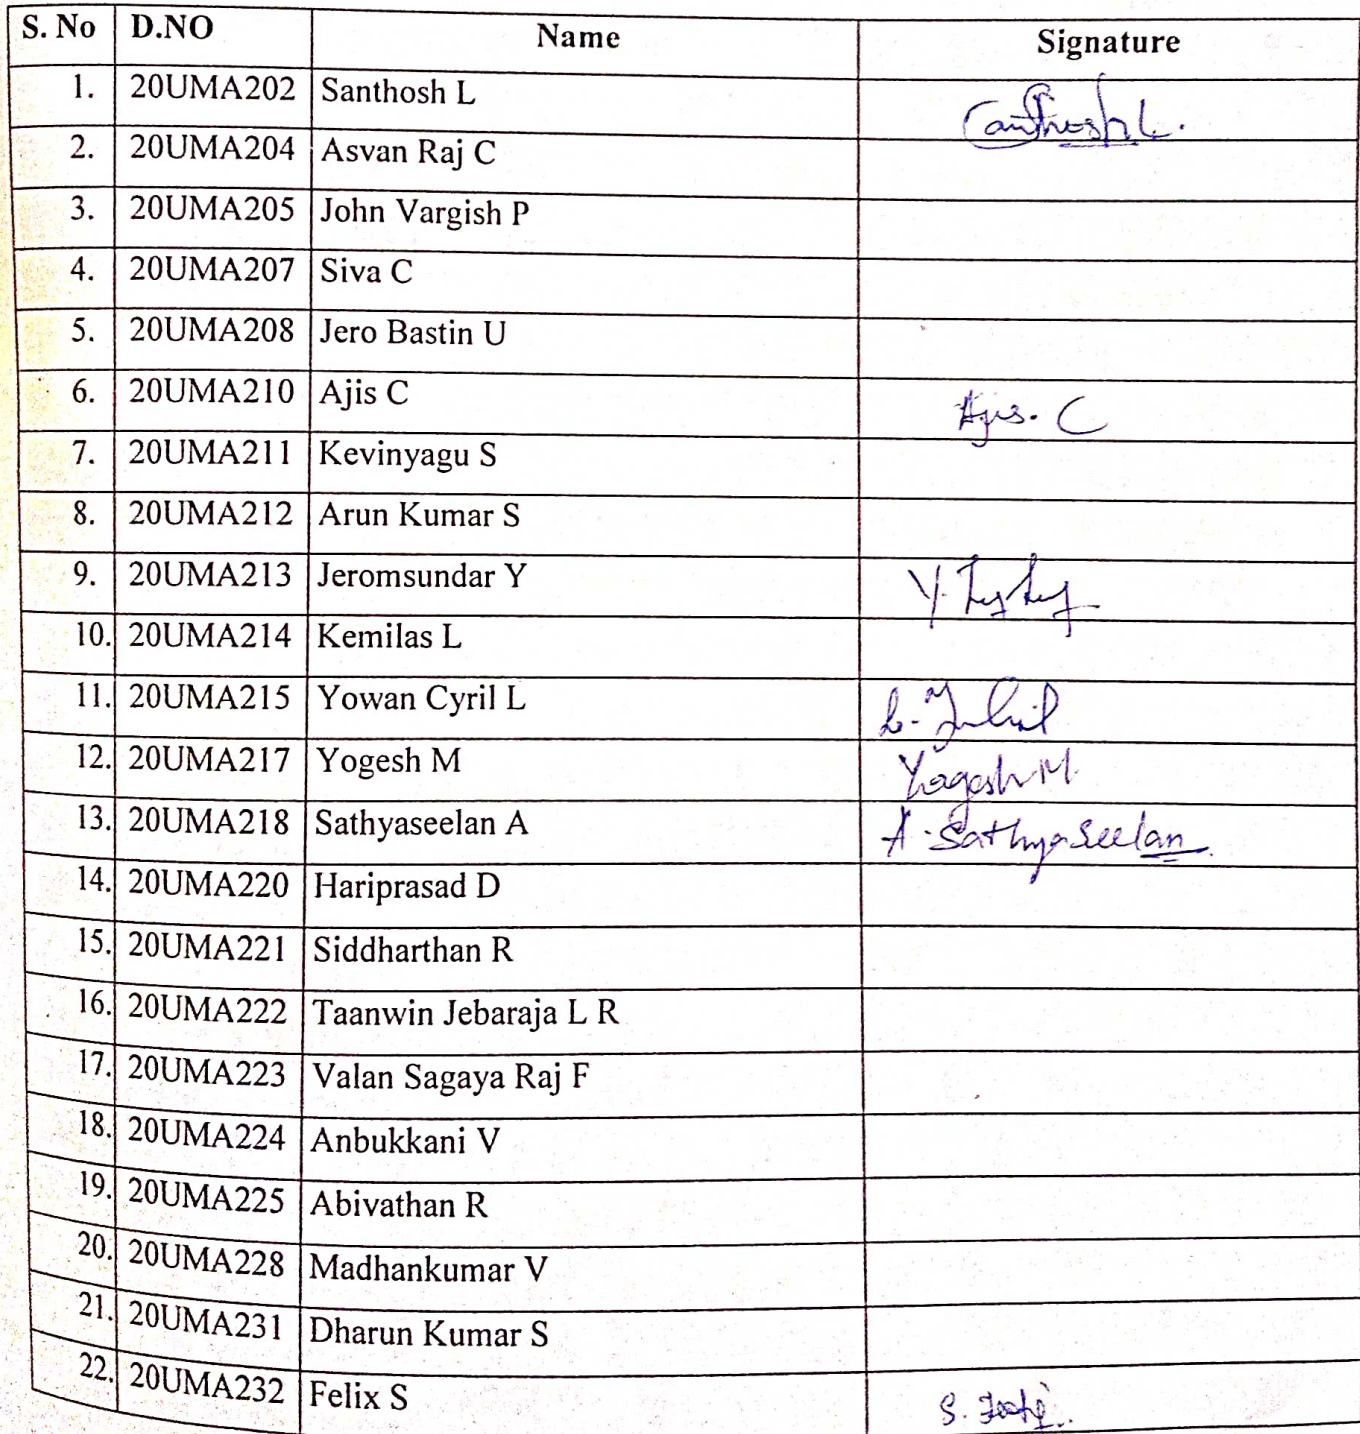 S. No D.NO Name Signature
1. 20UMA202 Santhosh L Santhosh L.
2. 20UMA204 Asvan Raj C
3. 20UMA205 John Vargish P
4. 20UMA207 Siva C
5. 20UMA208 Jero Bastin U
6. 20UMA210 Ajis C Ajis. C
7. 20UMA211 Kevinyagu S
8. 20UMA212 Arun Kumar S
9. 20UMA213 Jeromsundar Y Y.
10. 20UMA214 Kemilas L
11. 20UMA215 Yowan Cyril L L.
12. 20UMA217 Yogesh M Yogesh M.
13. 20UMA218 Sathyaseelan A A. Sathyaseelan
14. 20UMA220 Hariprasad D
15. 20UMA221 Siddharthan R
16. 20UMA222 Taanwin Jebaraja L R
17. 20UMA223 Valan Sagaya Raj F
18. 20UMA224 Anbukkani V
19. 20UMA225 Abivathan R
20. 20UMA228 Madhankumar V
21. 20UMA231 Dharun Kumar S
22. 20UMA232 Felix S S.